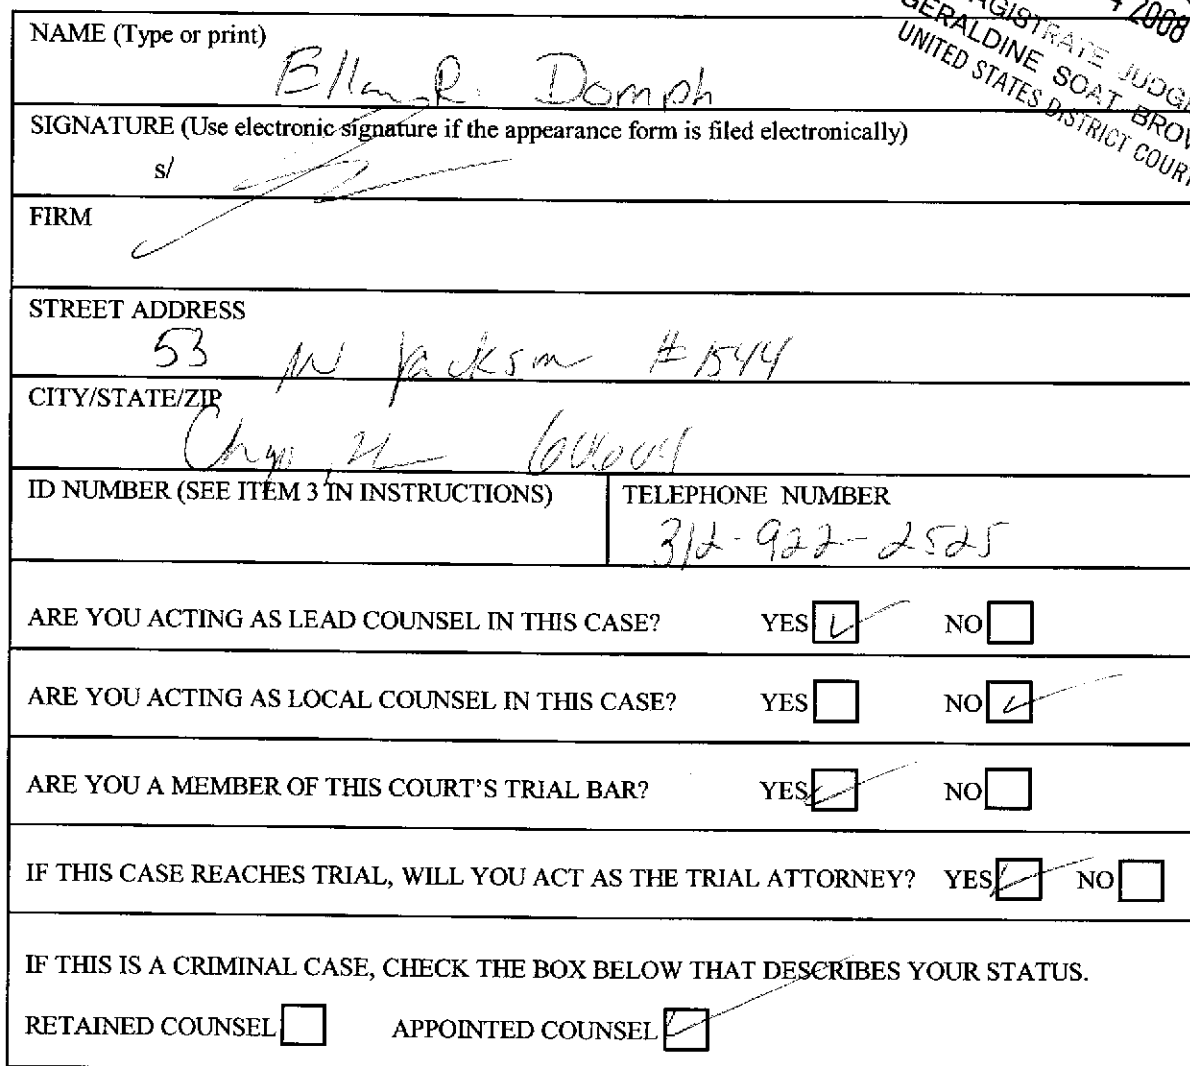 4 2008
MAGISTRATE JUDGE
GERALDINE SOAT BROWN
UNITED STATES DISTRICT COURT
NAME (Type or print)
Ellen R. Domph
SIGNATURE (Use electronic signature if the appearance form is filed electronically)
s/
FIRM
STREET ADDRESS
53 W Jackson # 1544
CITY/STATE/ZIP
60604
ID NUMBER (SEE ITEM 3 IN INSTRUCTIONS)
TELEPHONE NUMBER
312-922-2525
ARE YOU ACTING AS LEAD COUNSEL IN THIS CASE? YES NO
ARE YOU ACTING AS LOCAL COUNSEL IN THIS CASE? YES NO
ARE YOU A MEMBER OF THIS COURT'S TRIAL BAR? YES NO
IF THIS CASE REACHES TRIAL, WILL YOU ACT AS THE TRIAL ATTORNEY? YES NO
IF THIS IS A CRIMINAL CASE, CHECK THE BOX BELOW THAT DESCRIBES YOUR STATUS.
RETAINED COUNSEL APPOINTED COUNSEL